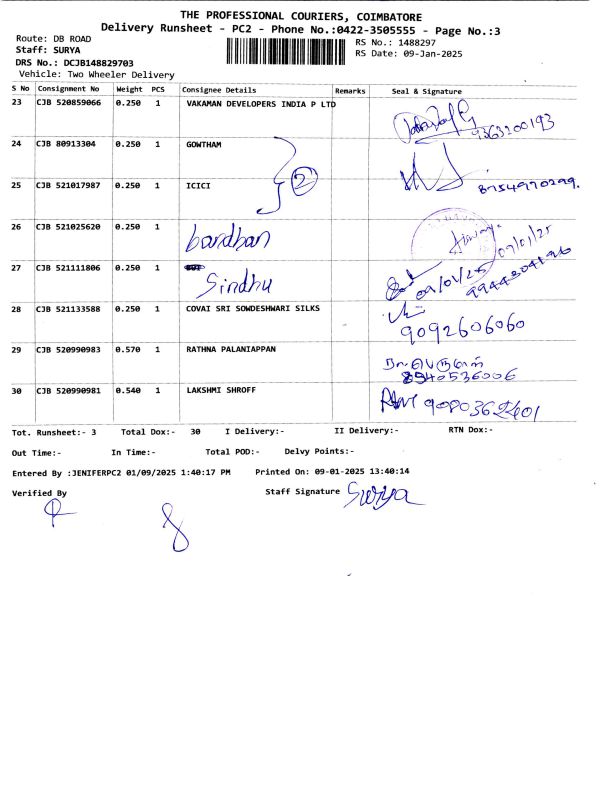 THE PROFESSIONAL COURIERS, COIMBATORE
Delivery Runsheet - PC2 - Phone No.:0422-3505555 - Page No.:3
Route: DB ROAD
RS No.: 1488297
Staff: SURYA
RS Date: 09-Jan-2025
DRS No.: DCJB148829703
Vehicle: Two Wheeler Delivery
S No Consignment No Weight PCS Consignee Details Remarks Seal & Signature
23 CJB 520859066 0.250 1 VAKAMAN DEVELOPERS INDIA P LTD
9363200193
24 CJB 80913304 0.250 1 GOWTHAM
2
25 CJB 521017987 0.250 1 ICICI 8754970299.
26 CJB 521025620 0.250 1 bandhan
09/01/25
27 CJB 521111806 0.250 1 Sindhu
09/01/25
28 CJB 521133588 0.250 1 COVAI SRI SOWDESHWARI SILKS
9092606060
29 CJB 520990983 0.570 1 RATHNA PALANIAPPAN
8940536006
30 CJB 520990981 0.540 1 LAKSHMI SHROFF
Tot. Runsheet:- 3 Total Dox:- 30 I Delivery:- II Delivery:- RTN Dox:-
Out Time:- In Time:- Total POD:- Delvy Points:-
Entered By :JENIFERPC2 01/09/2025 1:40:17 PM Printed On: 09-01-2025 13:40:14
Verified By Staff Signature Surya